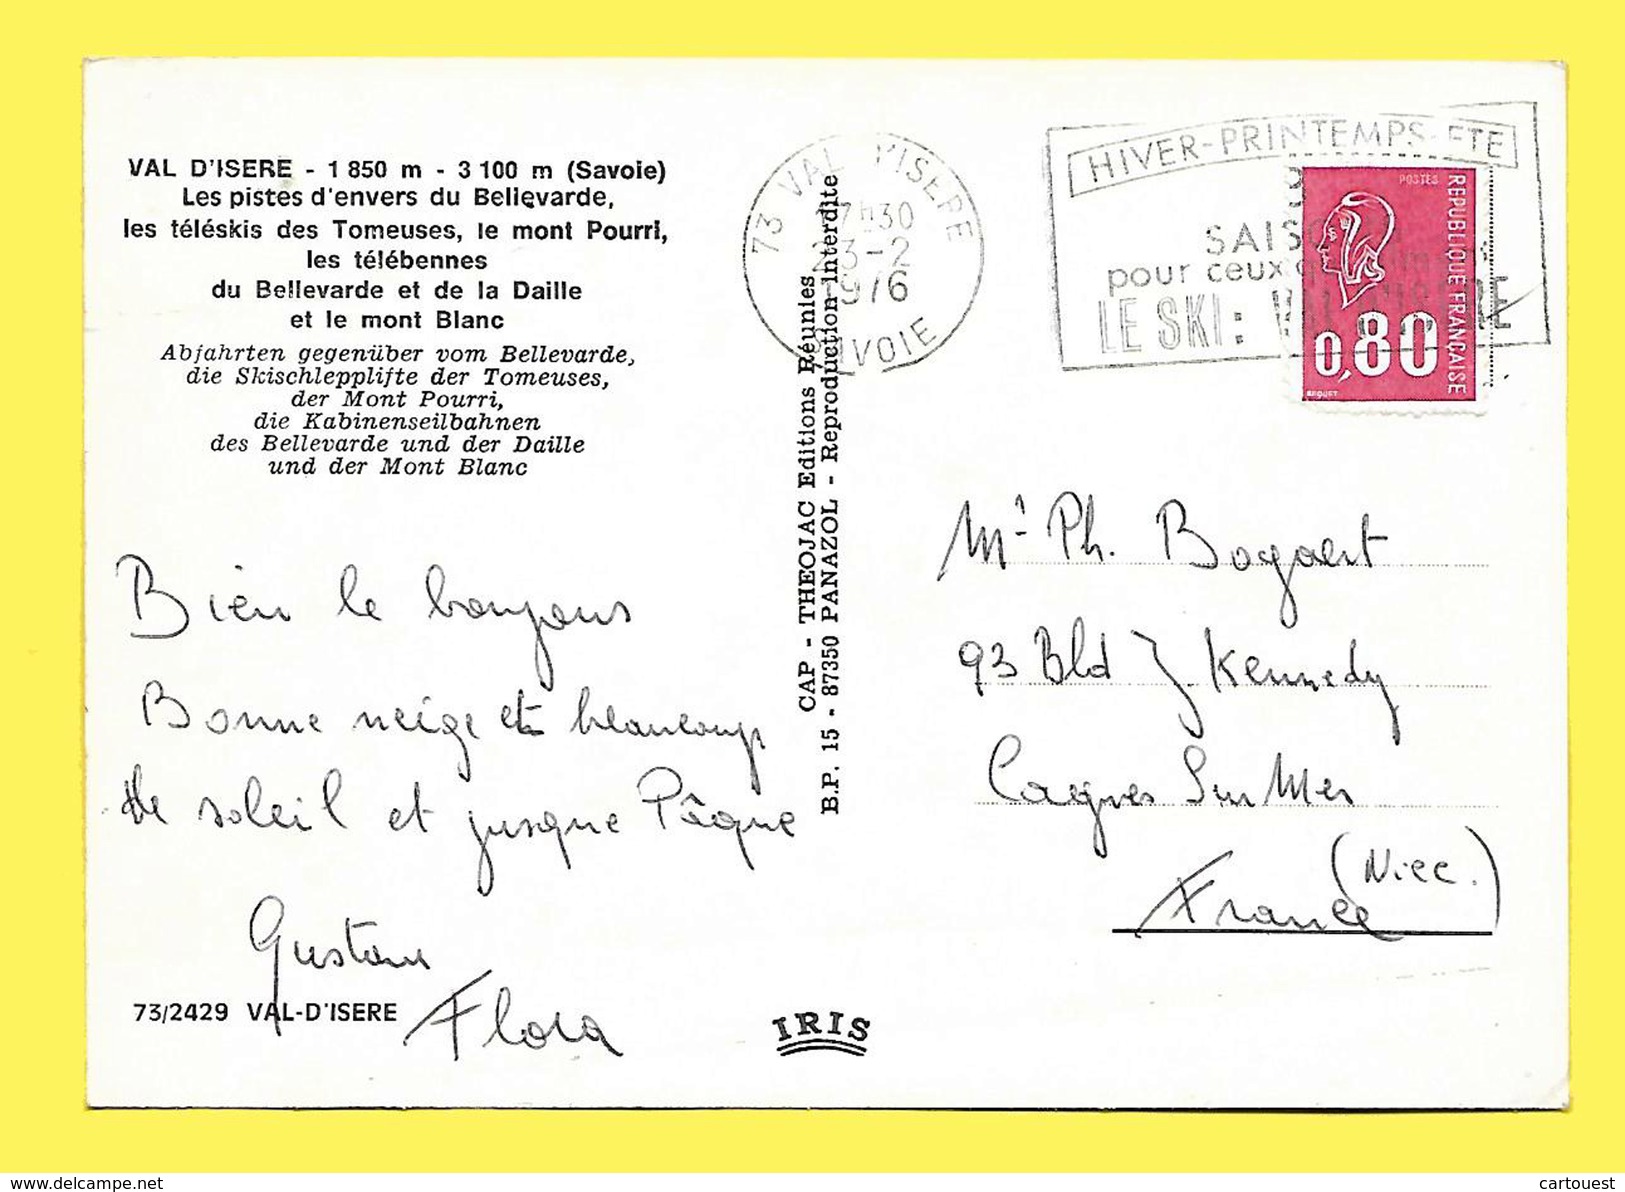 VAL D'ISERE - 1 850 m - 3 100 m (Savoie)
Les pistes d'envers du Bellevarde,
les téléskis des Tomeuses, le mont Pourri,
les télébennes
du Bellevarde et de la Daille
et le mont Blanc
Abfahrten gegenüber vom Bellevarde,
die Skischlepplifte der Tomeuses,
der Mont Pourri,
die Kabinenseilbahnen
des Bellevarde und der Daille
und der Mont Blanc
Bien le bonjour
Bonne neige et beaucoup
de soleil et jusque Pâque
Gustave
Flora
73/2429 VAL-D'ISERE
CAP - THEOJAC Editions Réunies
B.P. 15 - 87350 PANAZOL - Reproduction interdite
IRIS
73 VAL D'ISERE
17h30
23-2
1976
SAVOIE
HIVER-PRINTEMPS-ETE
SAIS
pour ceux
LE SKI: VAL D'ISERE
POSTES
REPUBLIQUE FRANÇAISE
0,80
BEQUET
Mr Ph. Bogaert
93 Bld J. Kennedy
Cagnes Sur Mer
(Nice.)
France
delcampe.net
cartouest